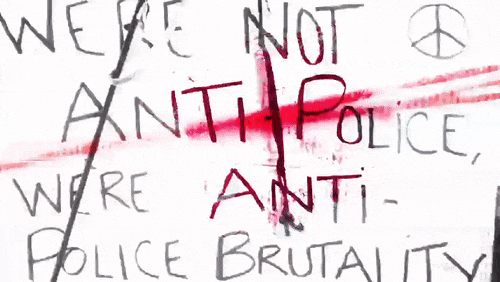 WERE NOT
ANTI-POLICE,
WERE ANTI-
POLICE BRUTALITY